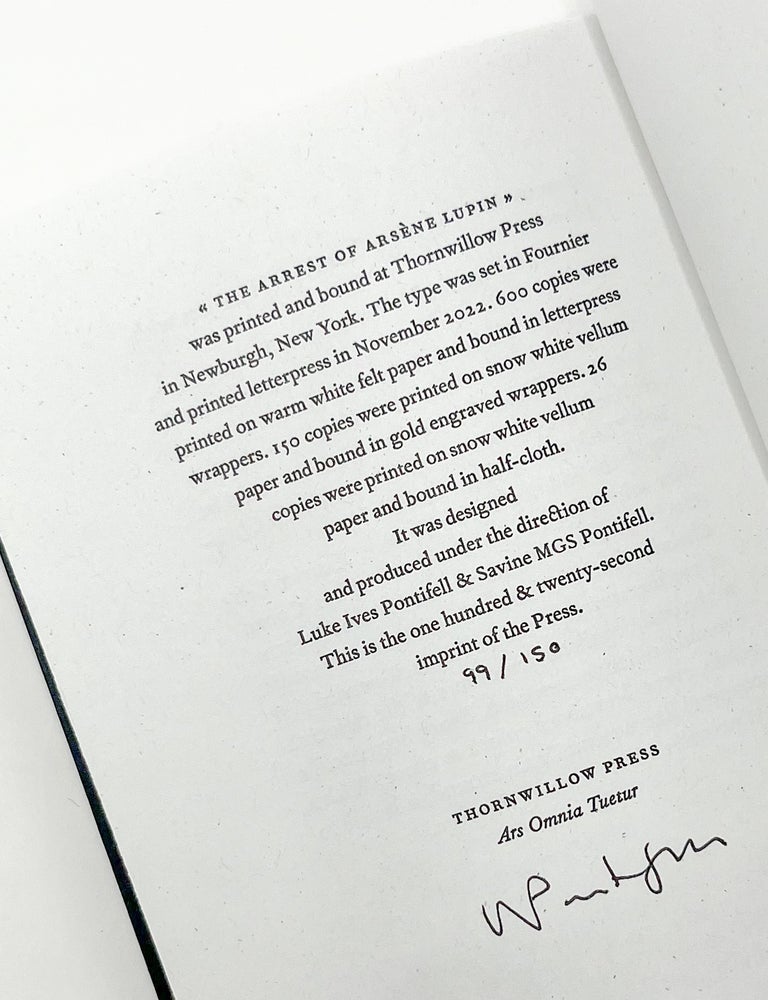 « THE ARREST OF ARSÈNE LUPIN »
was printed and bound at Thornwillow Press
in Newburgh, New York. The type was set in Fournier
and printed letterpress in November 2022. 600 copies were
printed on warm white felt paper and bound in letterpress
wrappers. 150 copies were printed on snow white vellum
paper and bound in gold engraved wrappers. 26
copies were printed on snow white vellum
paper and bound in half-cloth.
It was designed
and produced under the direction of
Luke Ives Pontifell & Savine MGS Pontifell.
This is the one hundred & twenty-second
imprint of the Press.
99 / 150
THORNWILLOW PRESS
Ars Omnia Tuetur